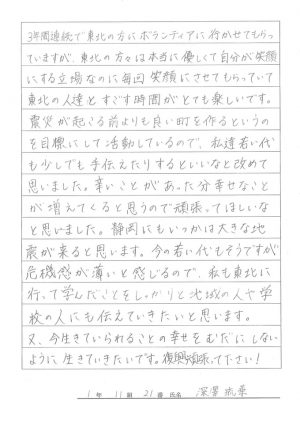 3年間連続で東北の方にボランティアに行かせてもらっ
ていますが、東北の方々は本当に優しくて自分が笑顔
にする立場なのに毎回笑顔にさせてもらっていて
東北の人達とすごす時間がとても楽しいです。
震災が起こる前よりも良い町を作るというの
を目標にして活動しているので、私達若い代
も少しでも手伝えたりするといいなと改めて
思いました。辛いことがあった分幸せなこと
が増えてくると思うので頑張ってほしいな
と思いました。静岡にもいつかは大きな地
震が来ると思います。今の若い代もそうですが
危機感が薄いと感じるので、私も東北に
行って学んだことをしっかりと地域の人や学
校の人にも伝えていきたいと思います。
又、今生きていられることの幸せをむだにしない
ように生きていきたいです。復興頑張って下さい!
1年 11組 21番 氏名 深澤